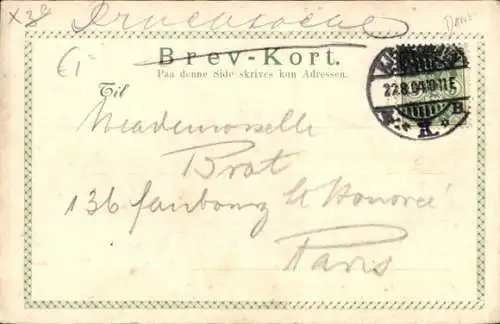 x38 Drucksache
Dän.
€1-
Brev-Kort.
Paa denne Side skrives kun Adressen.
Til
22.8.04.10-11F
K.
B.
Mademoiselle
Brat
136 faubourg St Honoré
Paris